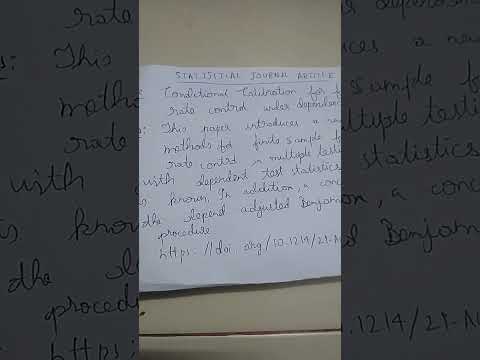 STATISITIAL JOURNAL ARTICLE
Conditional Calibration for
rate control under dependence
This paper introduces a new
methods for finite sample
rate control in multiple
with dependent test statistics
is known. In addition, a
the depend adjusted Benjamin
procedure
https://doi.org/10.1214/21-